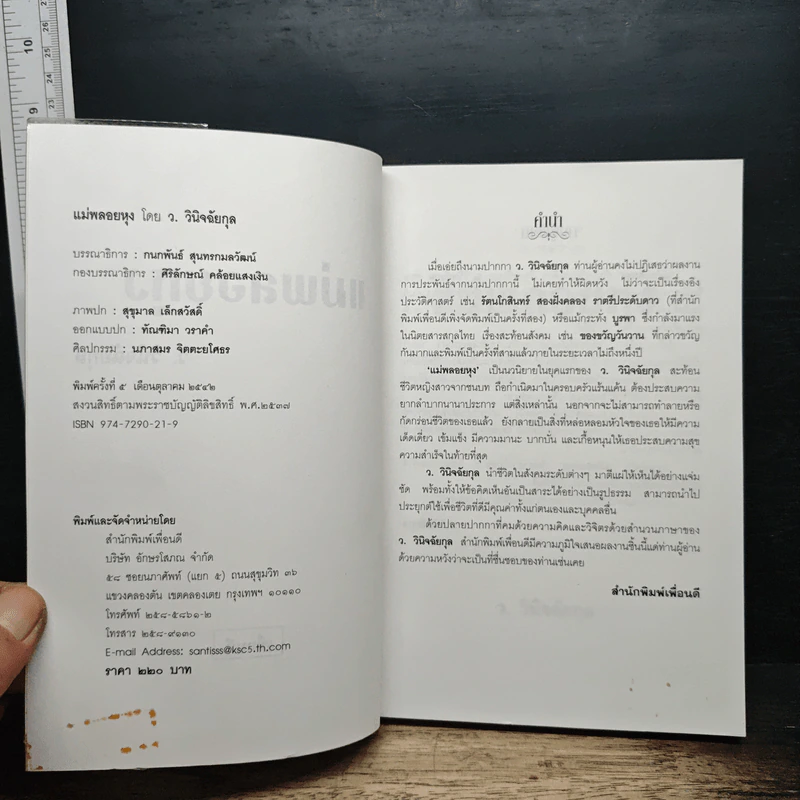 แม่พลอยหุง โดย ว. วินิจฉัยกุล
บรรณาธิการ : กนกพันธ์ สุนทรกมลวัฒน์
กองบรรณาธิการ : ศิริลักษณ์ คล้อยแสงเงิน
ภาพปก : สุขุมาล เล็กสวัสดิ์
ออกแบบปก : ทัณฑิมา วราคำ
ศิลปกรรม : นภาสมร จิตตะยโศธร
พิมพ์ครั้งที่ ๕ เดือนตุลาคม ๒๕๔๒
สงวนสิทธิ์ตามพระราชบัญญัติลิขสิทธิ์ พ.ศ.๒๕๓๗
ISBN 974-7290-21-9
พิมพ์และจัดจำหน่ายโดย
สำนักพิมพ์เพื่อนดี
บริษัท อักษรโสภณ จำกัด
๕๘ ซอยนภาศัพท์ (แยก ๕) ถนนสุขุมวิท ๓๖
แขวงคลองตัน เขตคลองเตย กรุงเทพฯ ๑๐๑๑๐
โทรศัพท์ ๒๕๘-๕๘๖๑-๒
โทรสาร ๒๕๘-๙๑๓๐
E-mail Address: santisss@ksc5.th.com
ราคา ๒๒๐ บาท
คำนำ
เมื่อเอ่ยถึงนามปากกา ว. วินิจฉัยกุล ท่านผู้อ่านคงไม่ปฏิเสธว่าผลงาน
การประพันธ์จากนามปากกานี้ ไม่เคยทำให้ผิดหวัง ไม่ว่าจะเป็นเรื่องอิง
ประวัติศาสตร์ เช่น รัตนโกสินทร์ สองฝั่งคลอง ราตรีประดับดาว (ที่สำนัก
พิมพ์เพื่อนดีเพิ่งจัดพิมพ์เป็นครั้งที่สอง) หรือแม้กระทั่ง บูรพา ซึ่งกำลังมาแรง
ในนิตยสารสกุลไทย เรื่องสะท้อนสังคม เช่น ของขวัญวันวาน ที่กล่าวขวัญ
กันมากและพิมพ์เป็นครั้งที่สามแล้วภายในระยะเวลาไม่ถึงหนึ่งปี
'แม่พลอยหุง' เป็นนวนิยายในยุคแรกของ ว. วินิจฉัยกุล สะท้อน
ชีวิตหญิงสาวจากชนบท ถือกำเนิดมาในครอบครัวแร้นแค้น ต้องประสบความ
ยากลำบากนานาประการ แต่สิ่งเหล่านั้น นอกจากจะไม่สามารถทำลายหรือ
กัดกร่อนชีวิตของเธอแล้ว ยังกลายเป็นสิ่งที่หล่อหลอมหัวใจของเธอให้มีความ
เด็ดเดี่ยว เข้มแข็ง มีความมานะ บากบั่น และเกื้อหนุนให้เธอประสบความสุข
ความสำเร็จในท้ายที่สุด
ว. วินิจฉัยกุล นำชีวิตในสังคมระดับต่างๆ มาตีแผ่ให้เห็นได้อย่างแจ่ม
ชัด พร้อมทั้งให้ข้อคิดเห็นอันเป็นสาระได้อย่างเป็นรูปธรรม สามารถนำไป
ประยุกต์ใช้เพื่อชีวิตที่ดีมีคุณค่าทั้งแก่ตนเองและบุคคลอื่น
ด้วยปลายปากกาที่คมด้วยความคิดและวิจิตรด้วยสำนวนภาษาของ
ว. วินิจฉัยกุล สำนักพิมพ์เพื่อนดีมีความภูมิใจเสนอผลงานชิ้นนี้แด่ท่านผู้อ่าน
ด้วยความหวังว่าจะเป็นที่ชื่นชอบของท่านเช่นเคย
สำนักพิมพ์เพื่อนดี